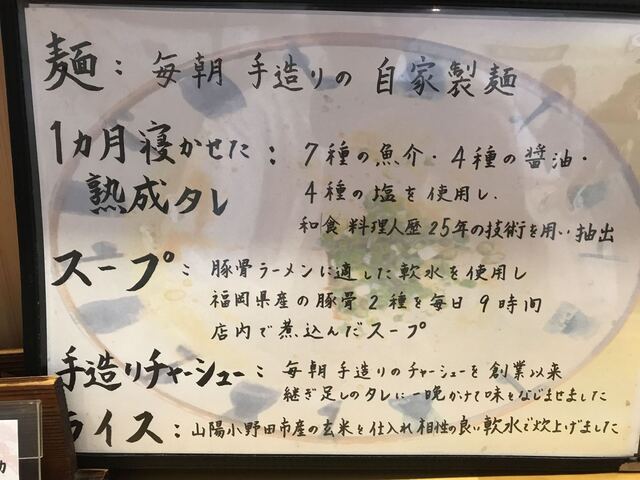 麺：毎朝 手造りの 自家製麺
1カ月寝かせた：7種の魚介・4種の醤油・
熟成タレ 4種の塩を使用し、
和食料理人歴25年の技術を用い抽出
スープ：豚骨ラーメンに適した軟水を使用し
福岡県産の豚骨2種を毎日9時間
店内で煮込んだスープ
手造りチャーシュー：毎朝手造りのチャーシューを創業以来
継ぎ足しのタレに一晩かけて味をなじませました
ライス：山陽小野田市産の玄米を仕入れ相性の良い軟水で炊上げました